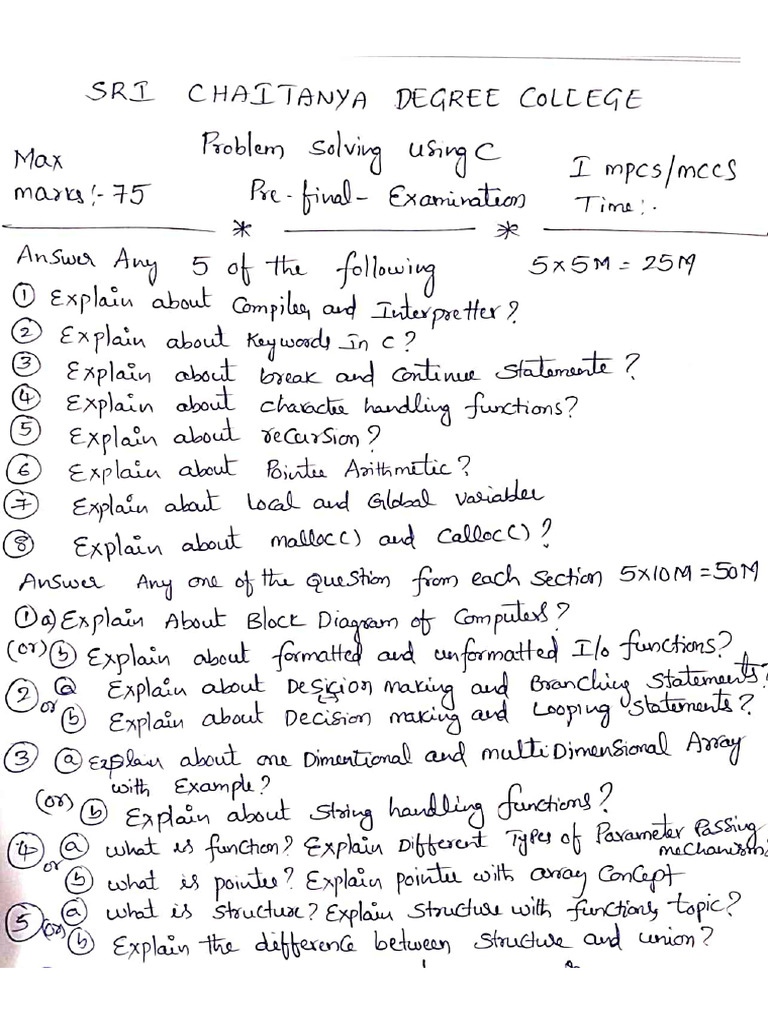 SRI CHAITANYA DEGREE COLLEGE
Problem Solving Using C
Max marks:- 75
Pre-final- Examination
I mpcs/mccs
Time:-
Answer Any 5 of the following 5x5M = 25M
① Explain about Compiler and Interpretter?
② Explain about Keywords in C?
③ Explain about break and continue Statements?
④ Explain about character handling functions?
⑤ Explain about recursion?
⑥ Explain about Pointer Arithmetic?
⑦ Explain about Local and Global variables
⑧ Explain about malloc() and calloc()?
Answer Any one of the Question from each section 5x10M = 50M
① a) Explain About Block Diagram of Computers?
(or) ⓑ Explain about formatted and unformatted I/o functions?
② ⓐ Explain about Desicion making and Branching Statements?
or ⓑ Explain about Decision making and Looping Statements?
③ ⓐ Explain about one Dimentional and multiDimensional Array
with Example?
(or) ⓑ Explain about String handling functions?
④ ⓐ what is function? Explain Different Types of Parameter Passing
mechanism?
or ⓑ what is pointer? Explain pointer with array Concept
⑤ ⓐ what is Structure? Explain Structure with functions topic?
(or) ⓑ Explain the difference between Structure and union?